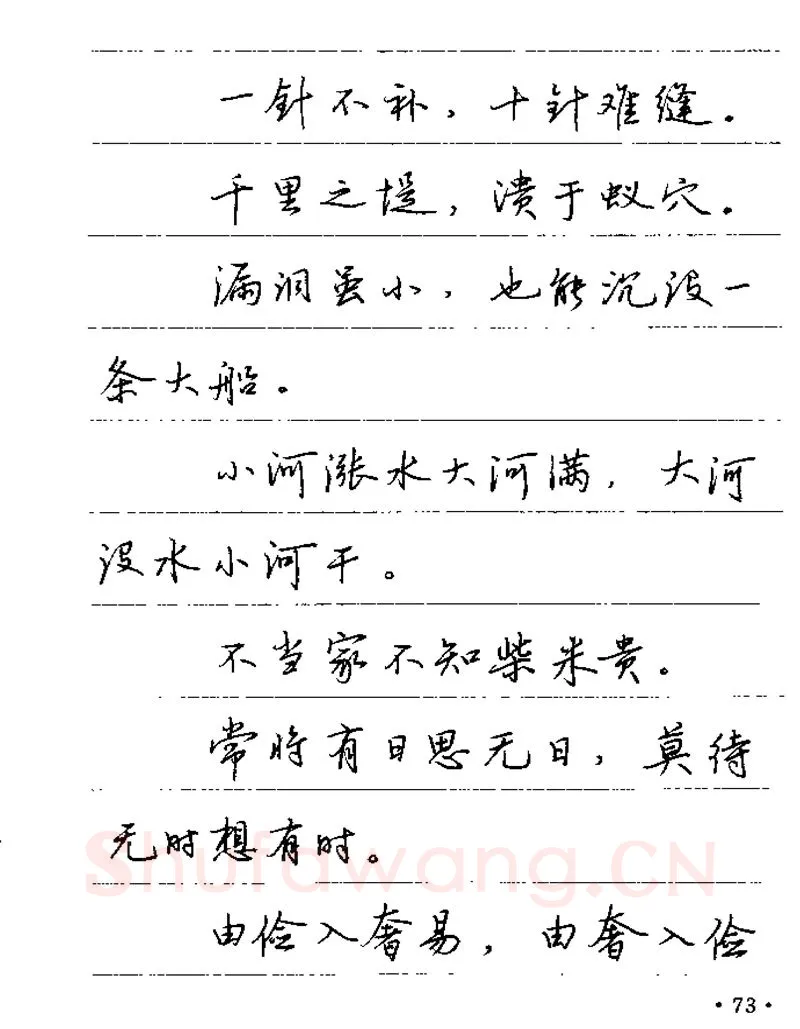 一针不补，十针难缝。
千里之堤，溃于蚁穴。
漏洞虽小，也能沉没一
条大船。
小河涨水大河满，大河
没水小河干。
不当家不知柴米贵。
常将有日思无日，莫待
无时想有时。
Shufawang.CN
由俭入奢易，由奢入俭
·73·